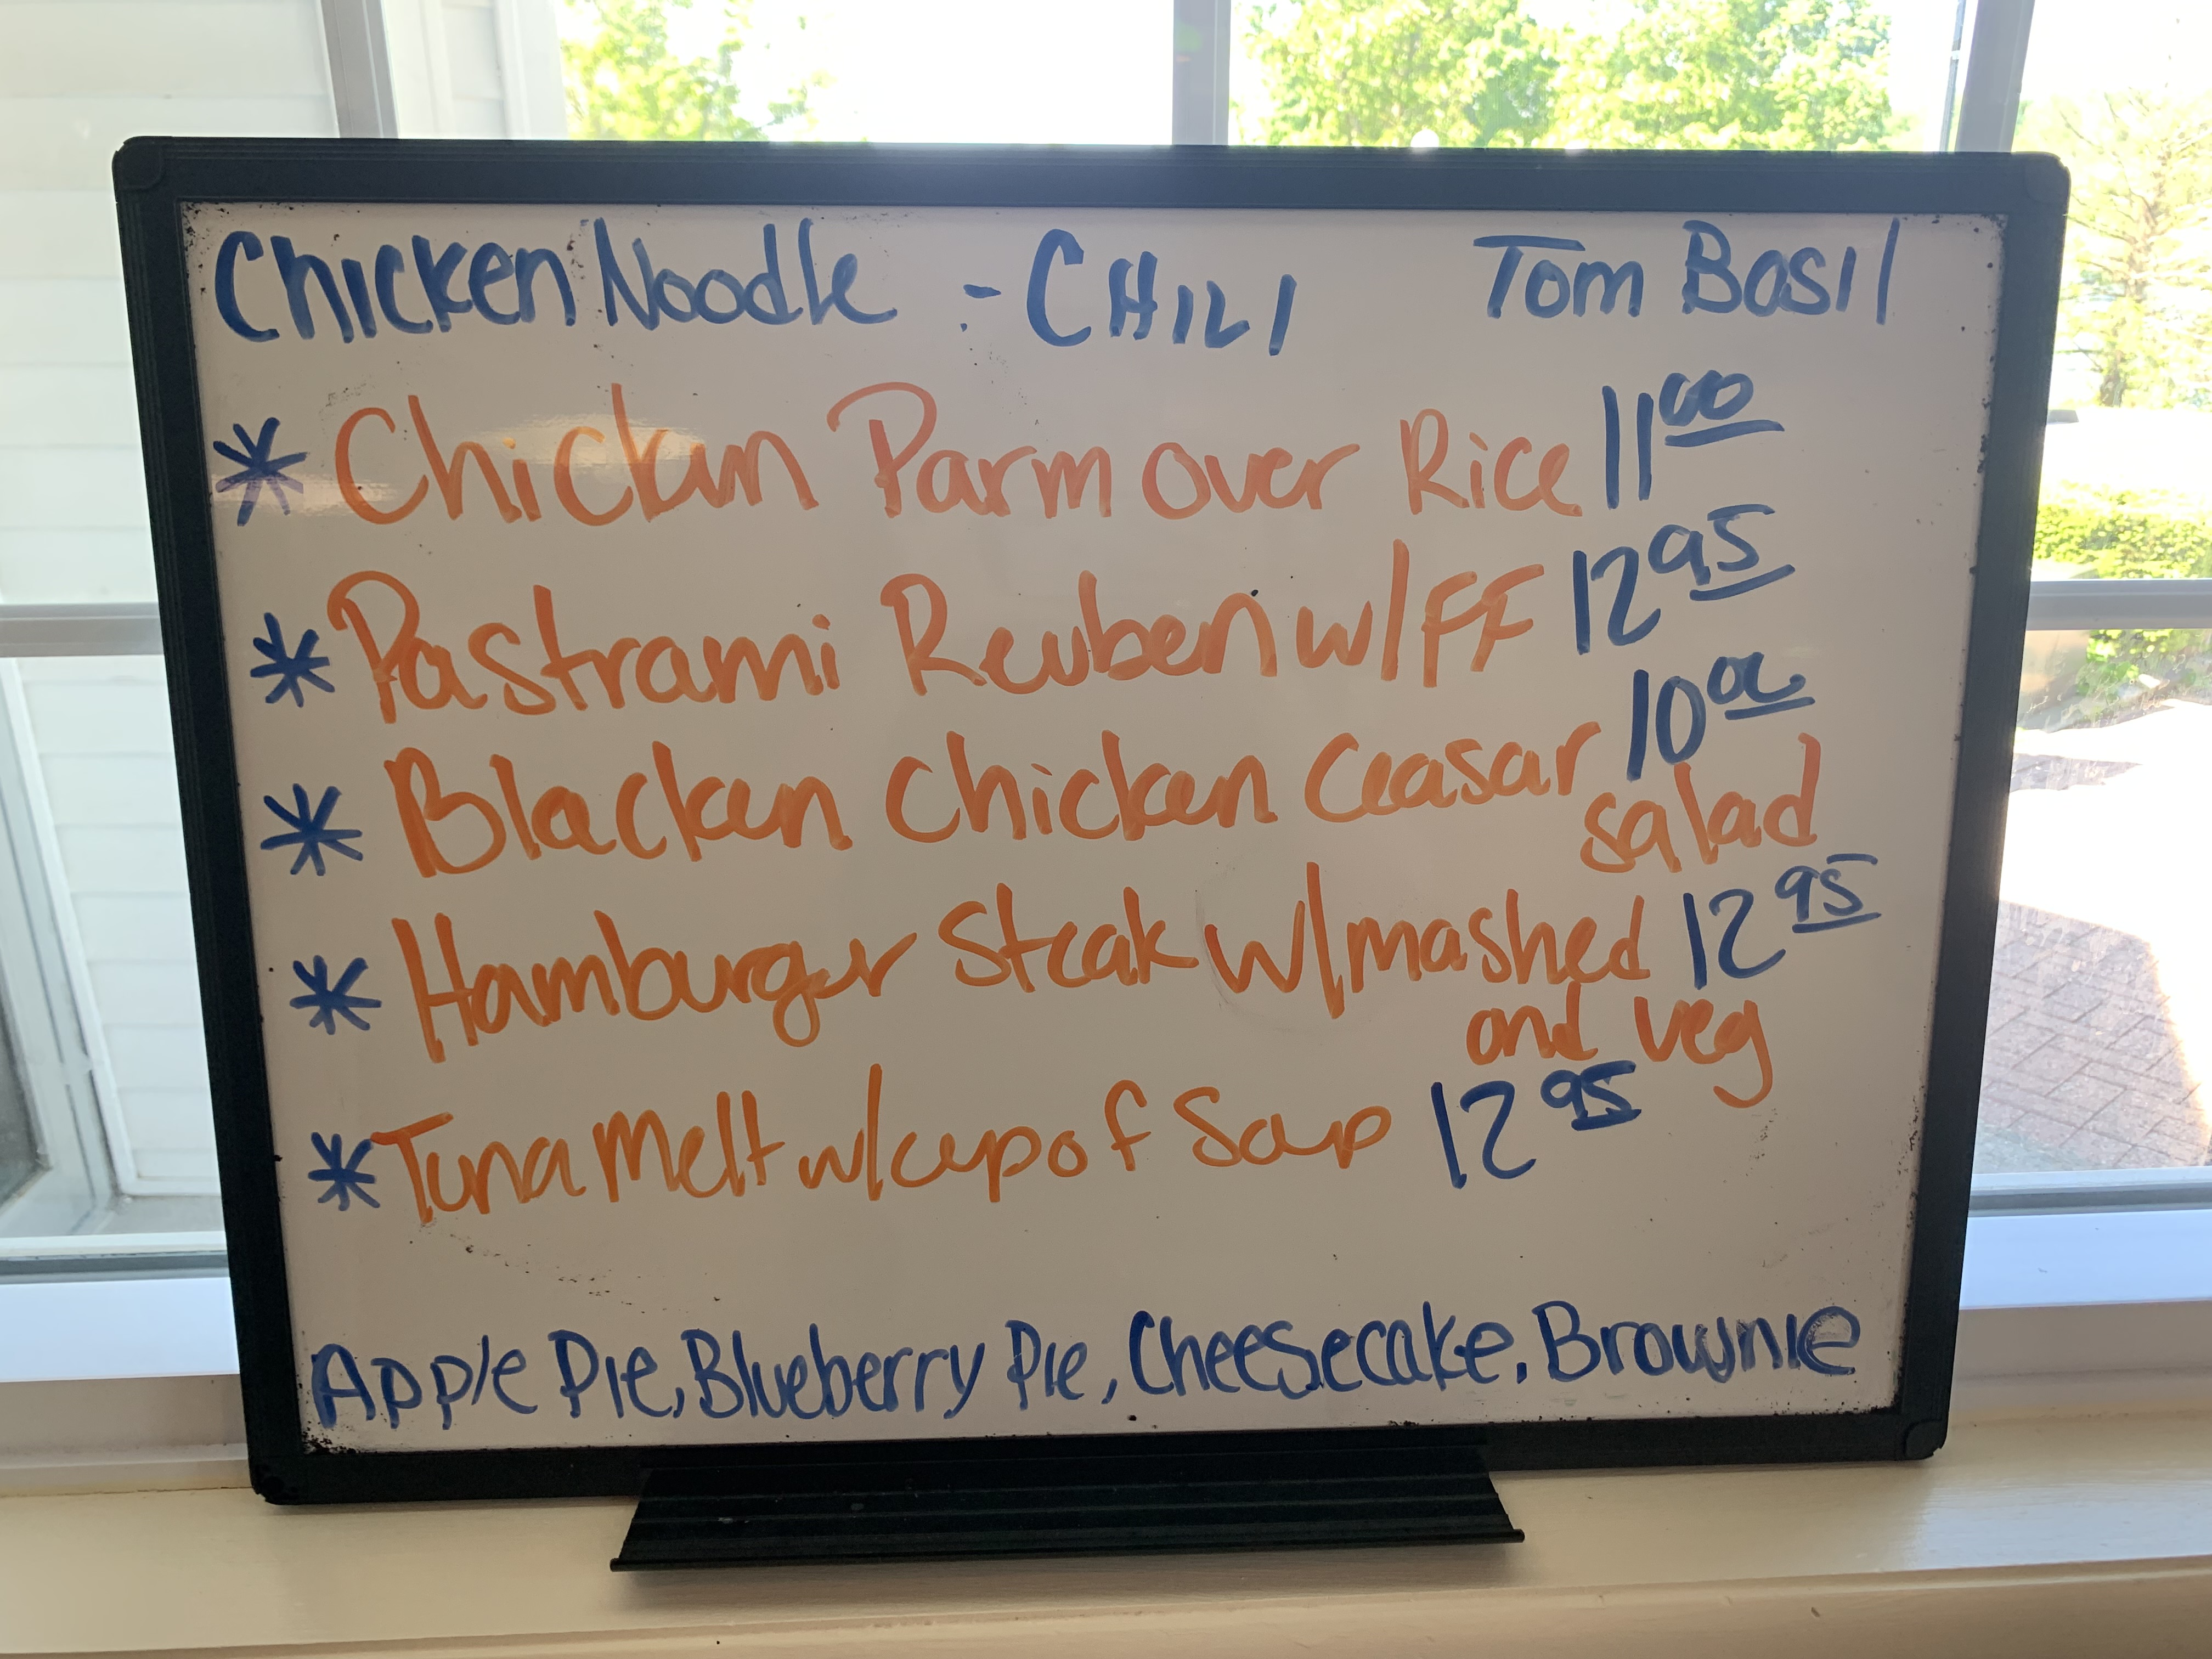 Chicken Noodle - CHILI Tom Basil
* Chicken Parm over Rice 11 00
* Pastrami Reuben w/FF 12 95
* Blacken Chicken Ceasar 10 00
salad
* Hamburger Steak w/mashed 12 95
and veg
* Tuna Melt w/cup of Soup 12 95
Apple Pie, Blueberry Pie, Cheesecake, Brownie